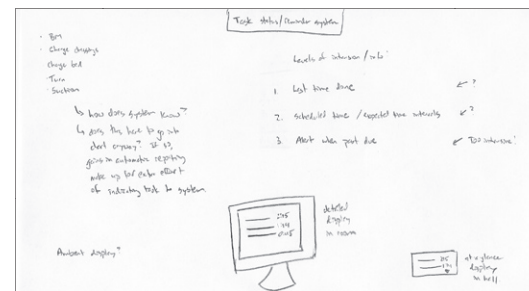 Task status/reminder system
· BM
· Change dressings
Change bed
· Turn
· Suction
↳ how does system know?
↳ does this have to go into
chart anyway? If so,
gains in automatic reporting
make up for extra effort
of indicating task to system
Levels of intrusion / info:
1. Last time done ↙ ?
2. scheduled time / expected time intervals ↙ ?
3. Alert when past due ↙ Too intrusive!
Ambient display?
detailed
display
in room
at a glance
display
in hall